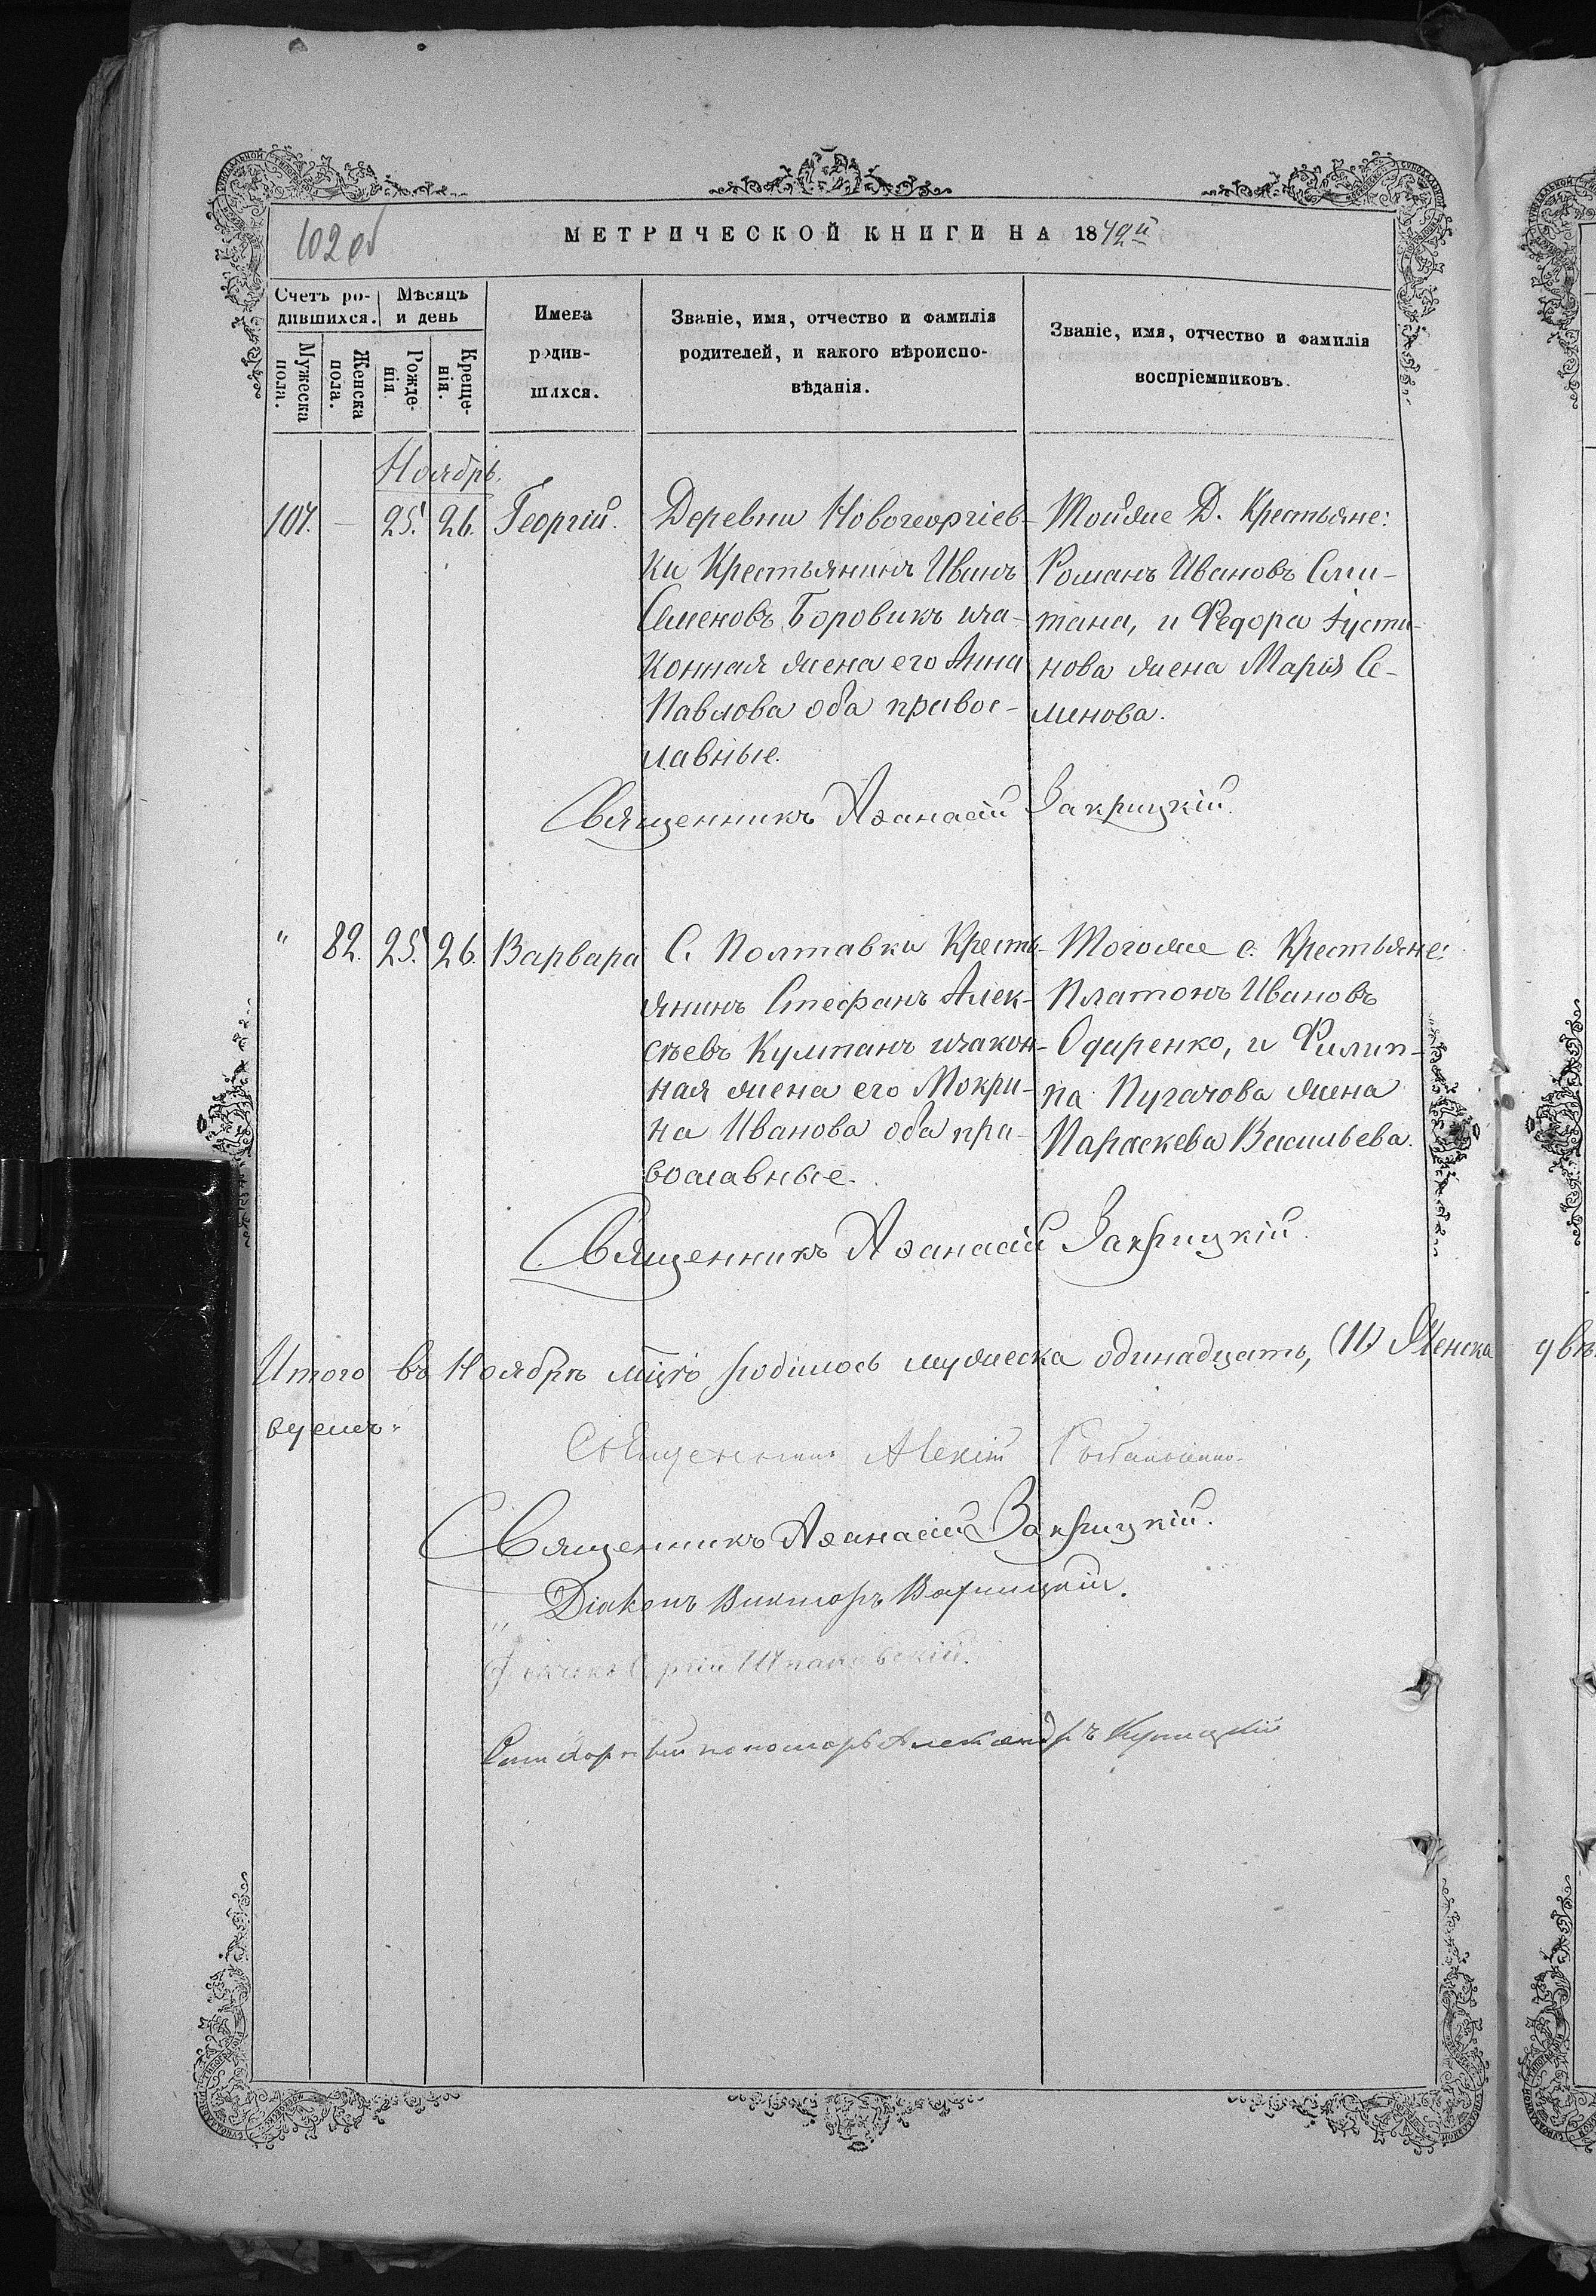 102 об
МЕТРИЧЕСКОЙ КНИГИ НА 1849й
Счетъ родившихся.
Мѣсяцъ и день
Имена родившихся.
Званіе, имя, отчество и фамилія родителей, и какого вѣроисповѣданія.
Званіе, имя, отчество и фамилія воспріемниковъ.
Мужеска пола.
Женска пола.
Рожденія
Крещенія.
Ноябрь.
107. — 25. 26. Георгій.
Деревни Новогеоргіев-
ки Крестьянинъ Иванъ
Семеновъ Боровикъ иза-
конная жена его Анна
Павлова оба правос-
лавные.
Тойже Д. Крестьяне:
Романъ Ивановъ Сми-
тана, и Федора Іусти-
нова жена Марія Се-
менова.
Священникъ Аѳанасій Закрицкій.
" 82. 25. 26. Варвара
С. Полтавки Кресть-
янинъ Стефанъ Алек-
сѣевъ Кулпанъ изакон-
ная жена его Мокри-
на Иванова оба пра-
вославные.
Тогоже с. Крестьяне:
Платонъ Ивановъ
Одаренко, и Филип-
па Пугачова жена
Параскева Васильева.
Священникъ Аѳанасій Закрицкій.
Итого въ Ноябрѣ мцѣ родилось мужеска одинадцать, (11) Женска
Священникъ
Священникъ Аѳанасій Закрицкій.
Діаконъ Викторъ
Шпаковскій.
пономарь Александръ